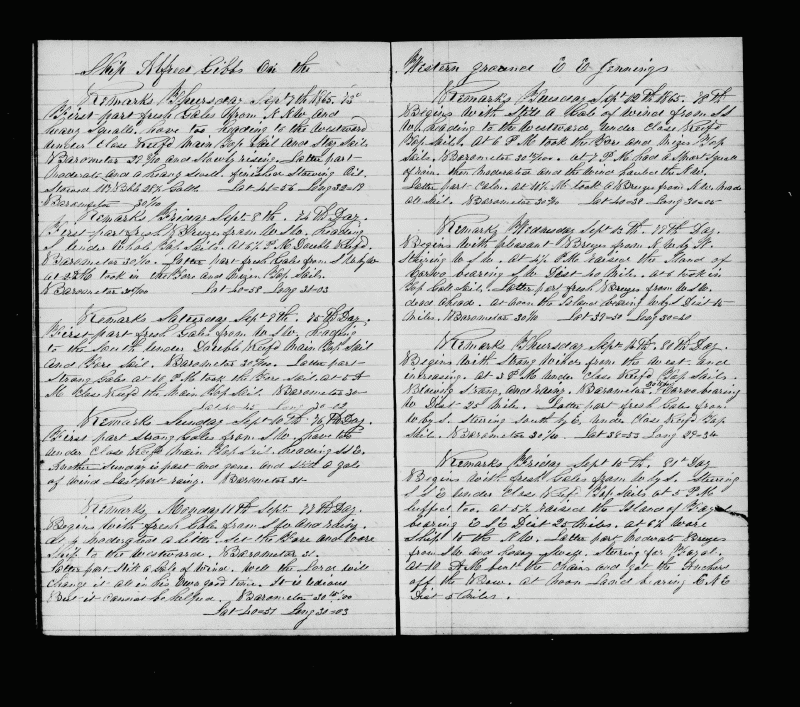 Ship Alfred Gibbs On the
Remarks Thursday Sept 7th 1865. 73d
First part fresh Gales from N.N.W. And
heavy Squalls. have too heading to the Westward
under close Reefd Main Top Sail And Stay Sails
Barometer 30/10 and Slowly rising. Latter part
moderate and a heavy swell. finished Stowing Oil.
Stowed Bbls Lat 41=56 Long 32=19
Barometer 30/10
Remarks Friday Sept 8th. 74th Day.
First part fresh Breezes from W.S.W. heading
S. under Whole Top Sails. At P.M. Double Reefd.
Barometer 30/10. Latter part fresh Gales from
at took in the Fore and Mizen Top Sails.
Barometer 30/00 Lat 40=58 Long 31=03
Remarks Saturday Sept 9th. 75th Day.
First part fresh Gales from W.S.W. heading
to the South under Double Reefd Main Top Sail
And Fore Sail. Barometer 30/00. Latter part
Strong Gales at 10 P.M. took the Fore Sail. at 5 A
M. Close Reefd the Main Top Sail. Barometer 30
Remarks Sunday Sept 10th. 76th Day.
First part Strong Gales from S.W. have too
under Close Reefd Main Top Sail. heading S.S.E.
Another Sunday is part and gone. and Still a gale
of wind Last part rainy. Barometer 31
Remarks, Monday 11th Sept. 77th Day.
Begins with fresh Gale from S.W. And rainy.
At 4 moderated a little. Set the Fore and Wore
Ship to the Westward. Barometer 31.
Latter part Still a Gale of Wind. Well the Lord will
Change it all in his Own good time. It is tedious
But it cannot be helped. Barometer 30
Lat 40=51 Long 31=03
Western ground E E Jennings
Remarks Tuesday Sept 12th 1865. 78th
Begins with Still a Gale of Wind from S.S.
W. heading to the Westward under Close Reefd
Top Sails. At 6 P.M. took the Fore and Mizen Top
Sails. Barometer 30/00. at 7 P.M. had a Short Squall
of rain. then Moderated and the Wind hauled the N.W.
Latter part Calm. at took a Breeze from N.W. made
all Sail. Barometer 30/10 Lat 40=38 Long 30=05
Remarks Wednesday Sept 13th 79th Day.
Begins With pleasant Breezes from N.W. by W.
Steering W.S.W. at P.M. raised the Island of
Corvo bearing S.W. Dist 40 Miles. at 8 took in
Top Gall Sails. Latter part fresh Breezes from W.S.W.
dead Ahead. at noon the Island bearing W by S Dist 15
Miles. Barometer 30/10 Lat 39=50 Long 30=40
Remarks Thursday Sept 14th. 80th Day.
Begins With Strong Winds from the West and
increasing. at 3 P.M. under Close Reefd Top Sails.
Blowing Strong, and rainy. Barometer 30/00 Corvo bearing
W. Dist 25 Miles. Latter part fresh Gales from
W. by S. Steering South by E. under Close Reefd Top
Sail. Barometer 30/10 Lat 38=53 Long 29=34
Remarks Friday Sept 15th. 81st Day
Begins With fresh Gales from W. by S. Steering
S.S.E. under Close Reef. Top Sails at 5 P.M.
Luffed too. at 5½ raised the Island of Fayal
bearing E.S.E. Dist 25 Miles. at 6½ Wore
Ship to the N.W. Latter part Moderate Breezes
from S.W. and heavy Swell. Steering for Fayal.
At 10 A.M. bent the Chains and got the Anchors
off the Bow. at Noon Land bearing E.N.E
Dist 5 Miles.